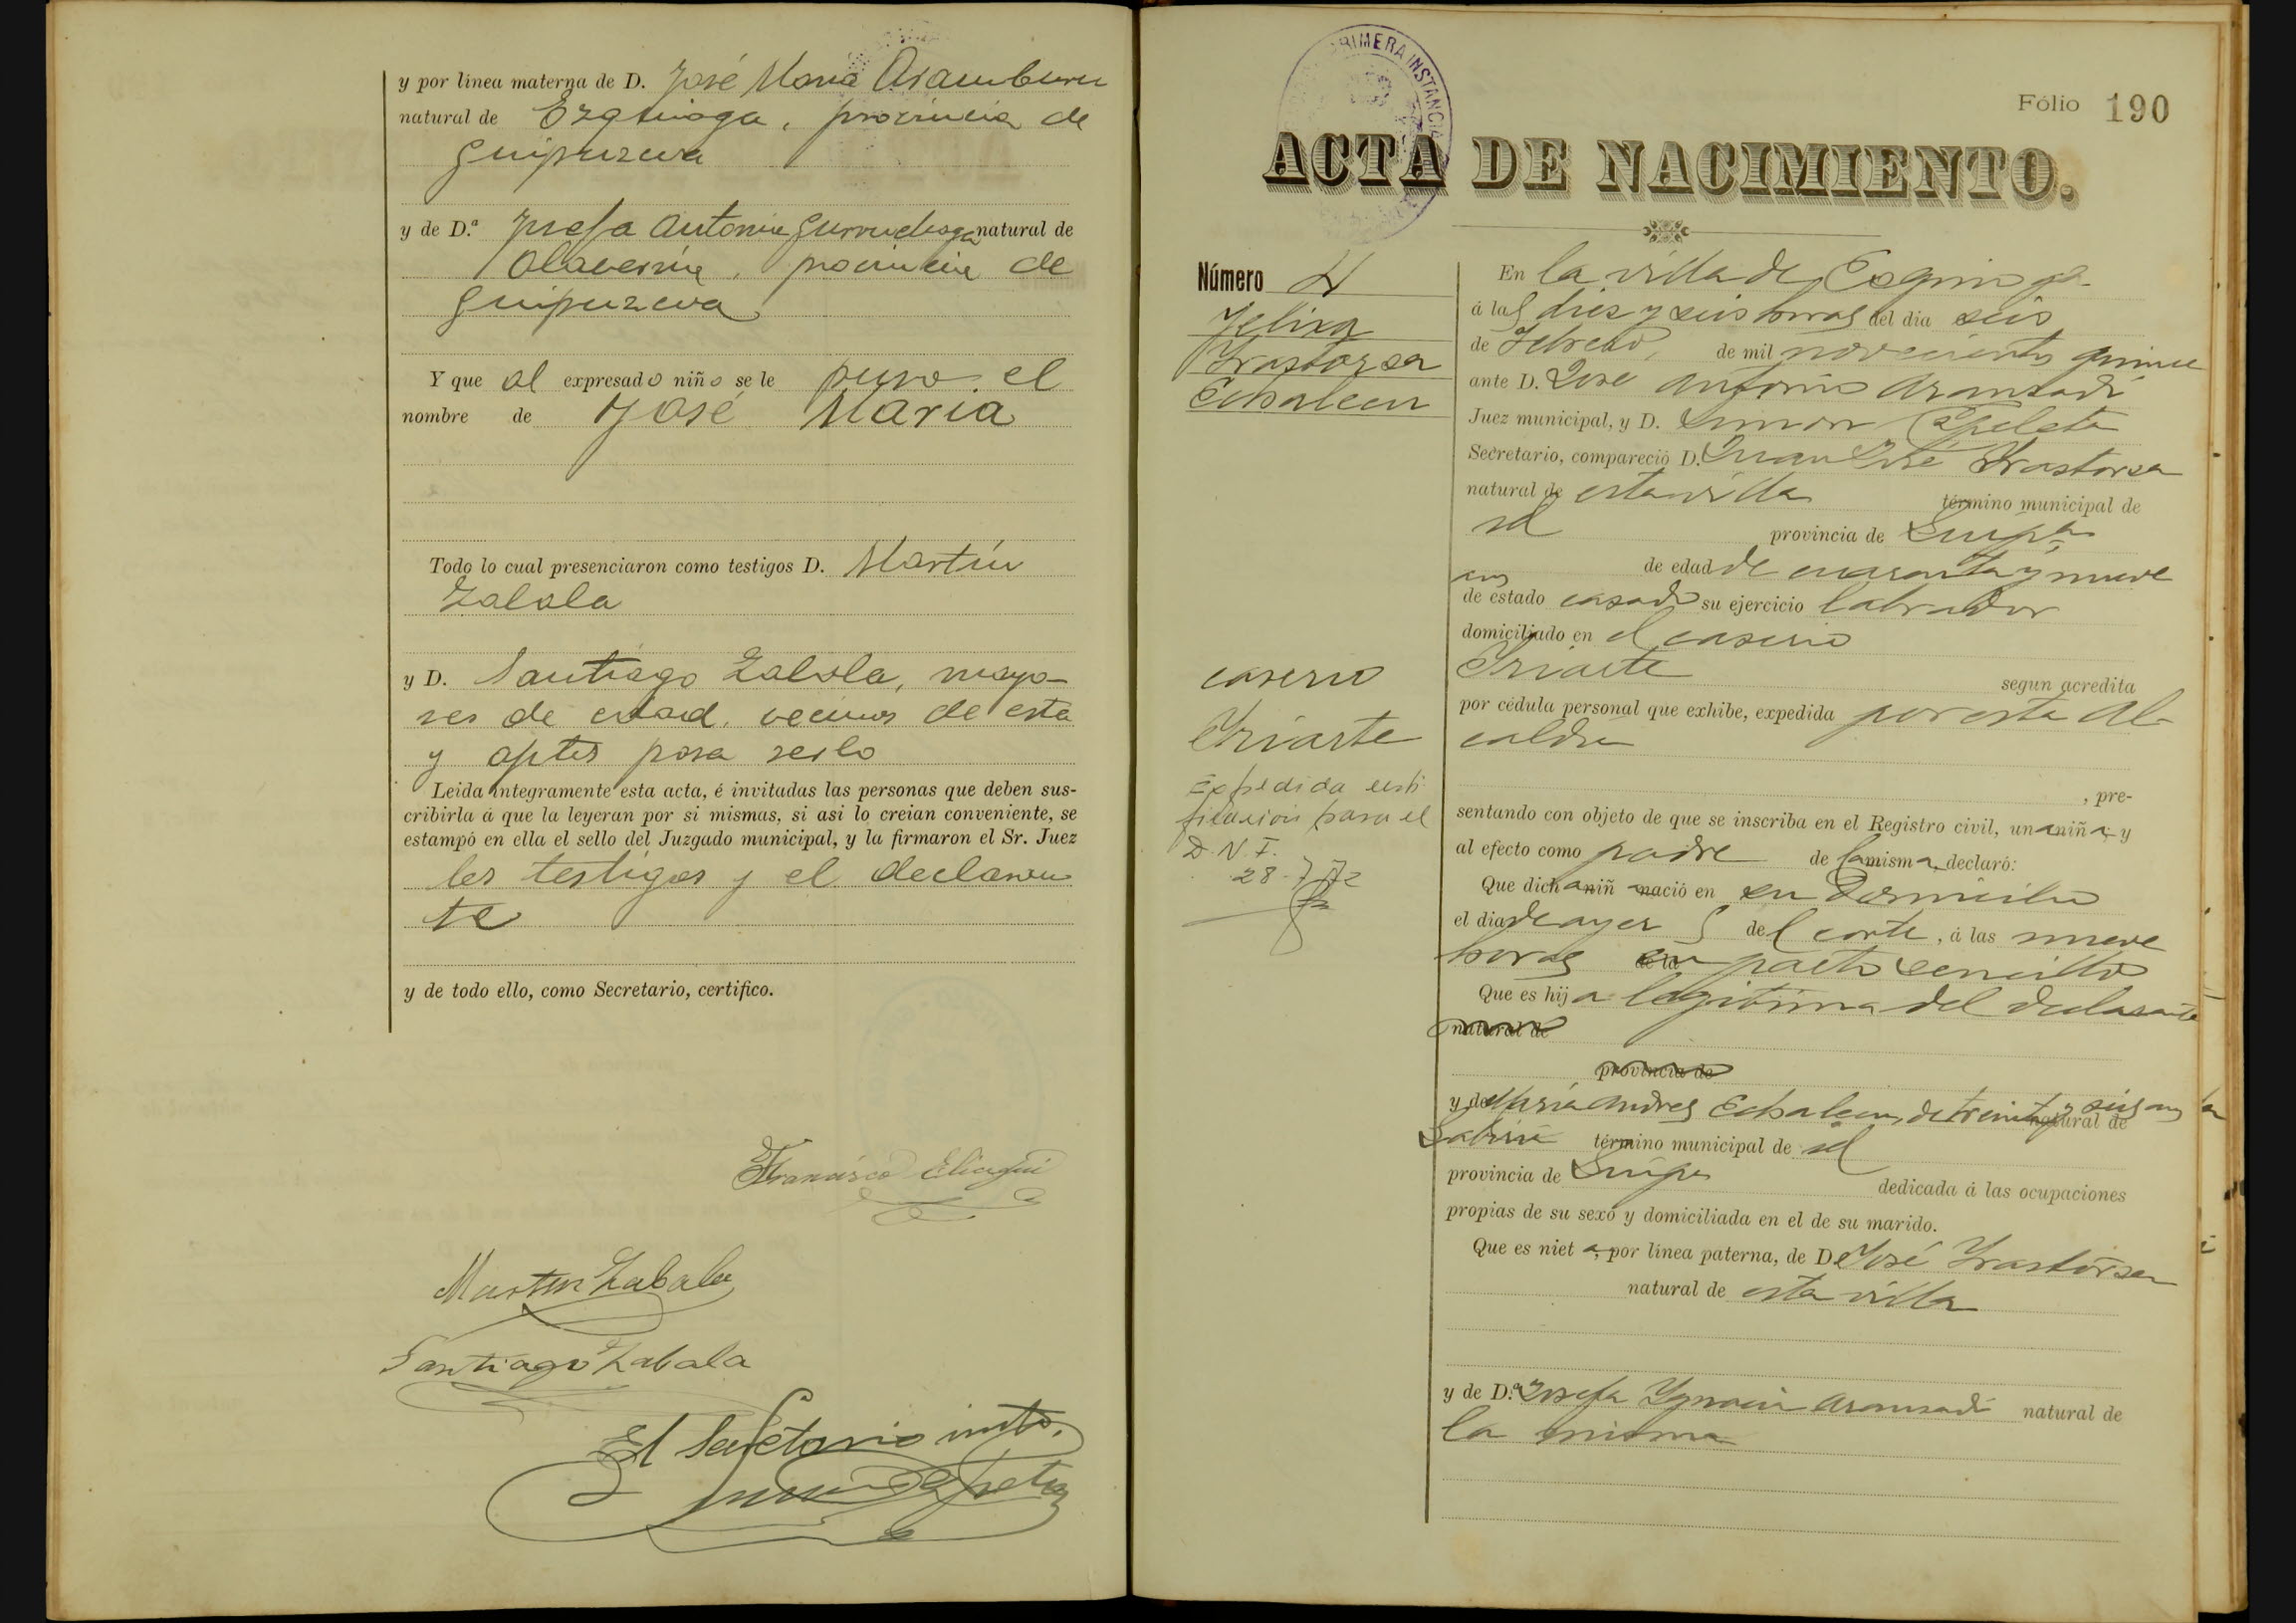 y por línea materna de D. José Maria Aramburu
natural de Ezquioga, provincia de
Guipuzcoa
y de D.ª Josefa Antonia Gurruchaga natural de
Olaverria, provincia de
Guipuzcoa
Y que al expresado niño se le puso el
nombre de José Maria
Todo lo cual presenciaron como testigos D. Martín
Zabala
y D. Santiago Zabala, mayo-
res de edad, vecinos de esta
y aptos para serlo
Leida íntegramente esta acta, é invitadas las personas que deben sus-
cribirla á que la leyeran por si mismas, si asi lo creian conveniente, se
estampó en ella el sello del Juzgado municipal, y la firmaron el Sr. Juez
los testigos y el declaran
te
y de todo ello, como Secretario, certifico.
Francisco
Martin Zabala
Santiago Zabala
El Secretario into.
PRIMERA INSTANCIA
Fólio 190
ACTA DE NACIMIENTO.
Número 4
Felisa
Yrastorza
Echaleeu
caserio
Yriarte
Expedida certi
ficacion para el
D.N.I.
28-7-72
En la villa de Ezquioga
á las diez y seis horas del dia seis
de Febrero, de mil novecientos quince
ante D. José Antonio Aranzadi
Juez municipal, y D. Simon Ezpeleta
Secretario, compareció D. Juan José Yrastorza
natural de esta villa término municipal de
id provincia de Guipa.
de edad de cuarenta y nueve
años
de estado casado su ejercicio labrador
domiciliado en el caserio
Yriarte segun acredita
por cédula personal que exhibe, expedida por esta Al-
caldia
, pre-
sentando con objeto de que se inscriba en el Registro civil, una niña y
al efecto como padre de la misma, declaró:
Que dicha niña nació en su domicilio
el dia de ayer del corte, á las nueve
horas de la en parto sencillo
Que es hija legitima del declarante
natural de
provincia de
y de Maria Andres Echaleeu, de treinta y seis años natural de
Gabiria término municipal de id
provincia de Guipa dedicada á las ocupaciones
propias de su sexo y domiciliada en el de su marido.
Que es nieta, por línea paterna, de D. José Yrastorza
natural de esta villa
y de D.ª Josefa Ygnacia Aranzadi natural de
la misma